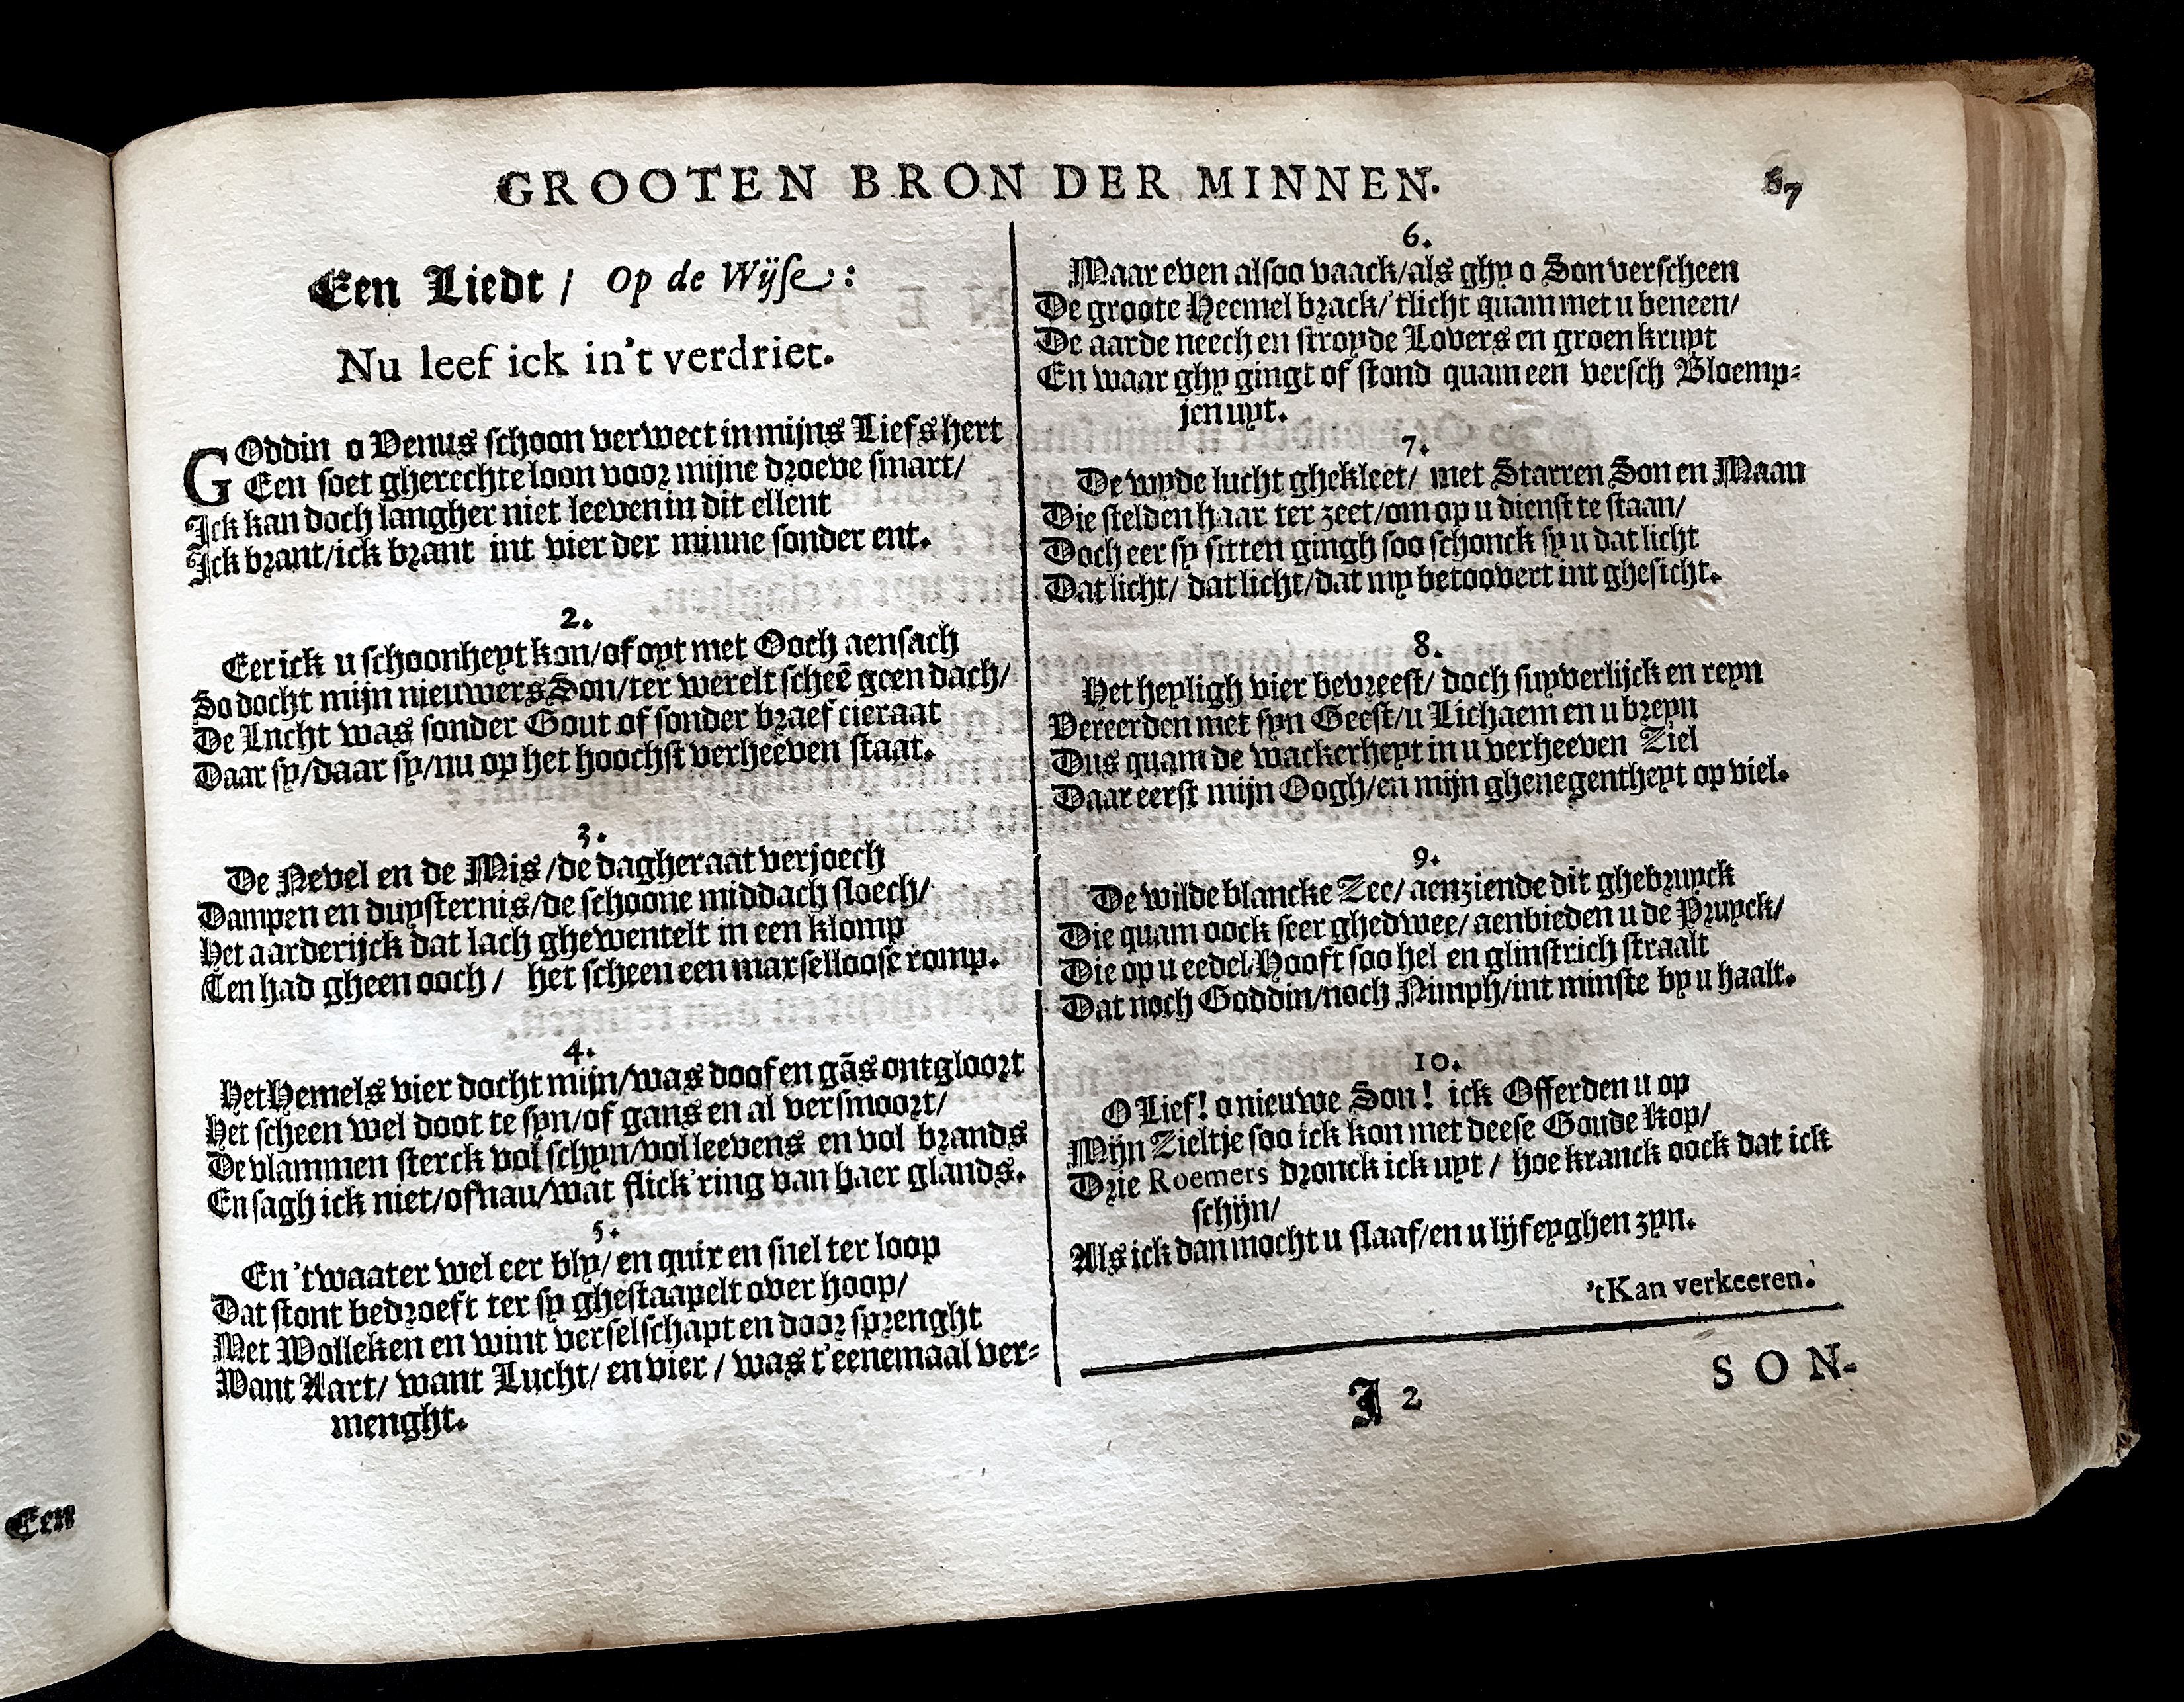 GROOTEN BRON DER MINNEN.
67
Een Liedt / Op de Wijse:
Nu leef ick in't verdriet.
GOddin o Venus schoon verwect in mijns Liefs hert
Een soet gherechte loon voor mijne droeve smart/
Ick kan doch langher niet leeven in dit ellent
Ick brant/ick brant int vier der minne sonder ent.
2.
Eer ick u schoonheyt kon/of oyt met Ooch aensach
So docht mijn nieuwers Son/ter werelt scheẽ geen dach/
De Lucht was sonder Gout of sonder braef cieraat
Daar sy/daar sy/nu op het hoochst verheeven staat.
3.
De Nevel en de Mis/de dagheraat verjoech
Dampen en duysternis/de schoone middach sloech/
Het aarderijck dat lach ghewentelt in een klomp
Ten had gheen ooch / het scheen een marselloose romp.
4.
Het Hemels vier docht mijn/was doof en gãs ontgloort
Het scheen wel doot te syn/of gans en al versmoort/
De vlammen sterck vol schyn/vol leevens en vol brands
En sagh ick niet/of nau/wat flick'ring van haer glands.
5.
En 't waater wel eer bly/en quix en snel ter loop
Dat stont bedroeft ter sy ghestaapelt over hoop/
Met Wolleken en wint verselschapt en door sprenght
Want Aart/ want Lucht/ en vier / was t'eenemaal ver-
menght.
6.
Maar even alsoo vaack/als ghy o Son verscheen
De groote Heemel brack/'tlicht quam met u beneen/
De aarde neech en stroyde Lovers en groen kruyt
En waar ghy gingt of stond quam een versch Bloemp-
jen uyt.
7.
De wyde lucht ghekleet/ met Starren Son en Maan
Die stelden haar ter zeet/om op u dienst te staan/
Doch eer sy sitten gingh soo schonck sy u dat licht
Dat licht/ dat licht/dat my betoovert int ghesicht.
8.
Het heyligh vier bevreest/ doch suyverlijck en reyn
Vereerden met syn Geest/u Lichaem en u breyn
Dus quam de wackerheyt in u verheeven Ziel
Daar eerst mijn Oogh/en mijn ghenegentheyt op viel.
9.
De wilde blancke Zee/ aenziende dit ghebruyck
Die quam oock seer ghedwee/ aenbieden u de Pruyck/
Die op u eedel Hooft soo hel en glinstrich straalt
Dat noch Goddin/noch Nimph/int minste by u haalt.
10.
O Lief! o nieuwe Son! ick Offerden u op
Mijn Zieltje soo ick kon met deese Goude kop/
Drie Roemers dronck ick uyt / hoe kranck oock dat ick
schijn/
Als ick dan mocht u slaaf/en u lijf eyghen zyn.
't Kan verkeeren.
I 2
SON-
Een